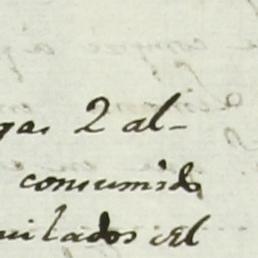 gas 2 al-
consumido
uilados el